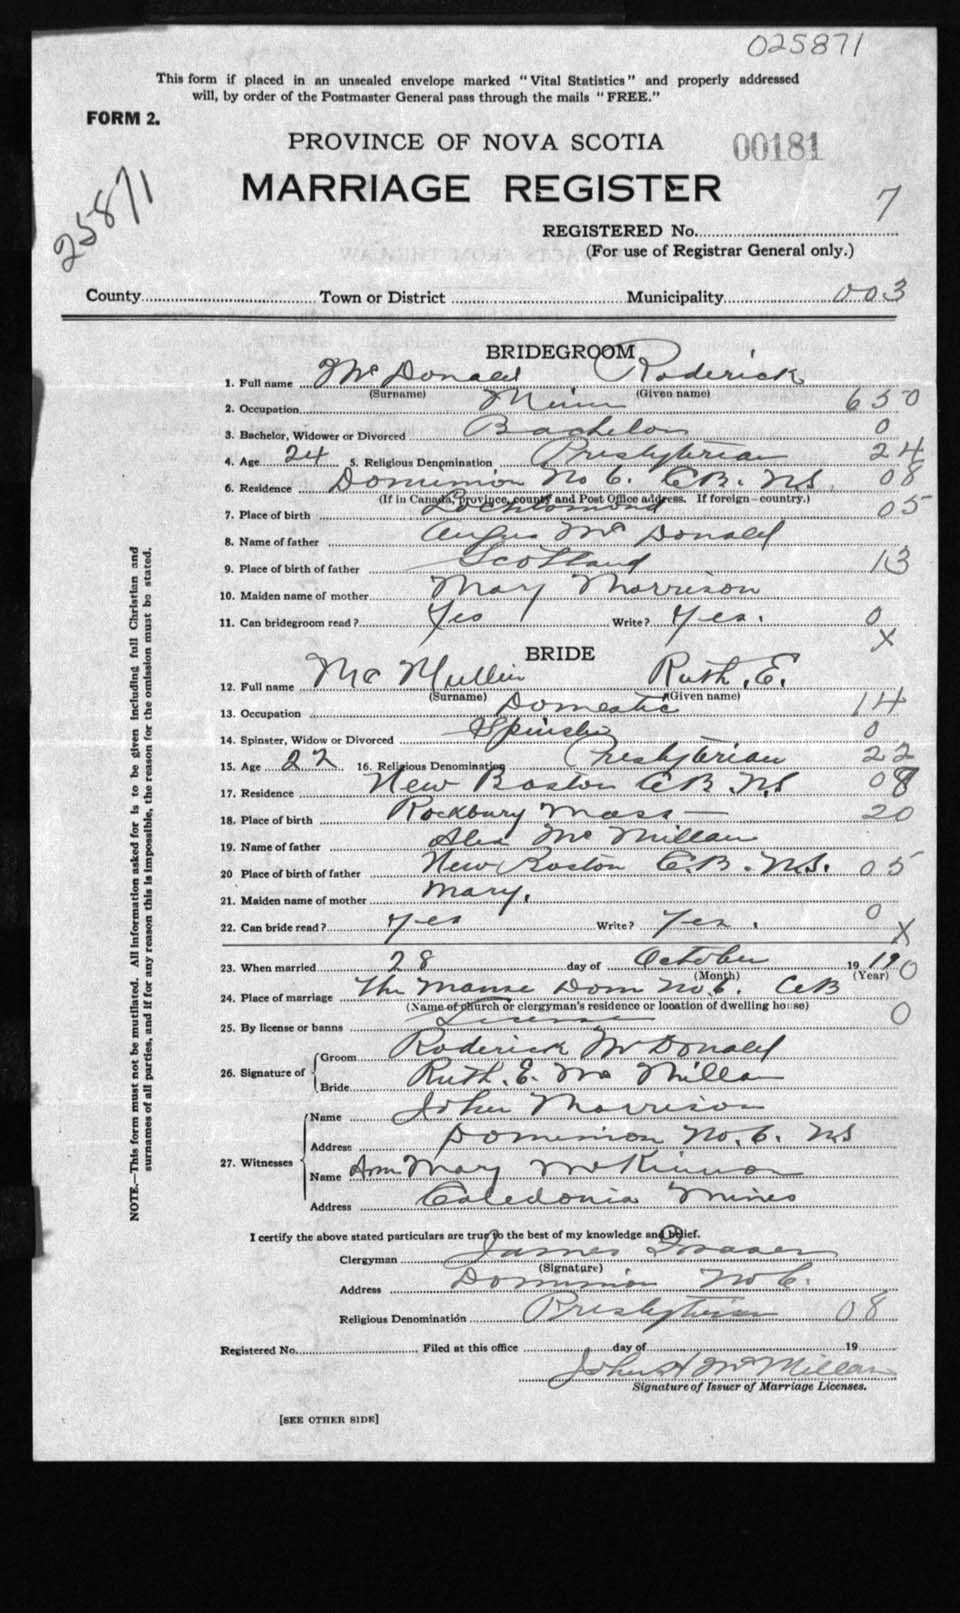 025871
This form if placed in an unsealed envelope marked "Vital Statistics" and properly addressed
will, by order of the Postmaster General pass through the mails "FREE."
FORM 2.
PROVINCE OF NOVA SCOTIA
00181
MARRIAGE REGISTER
25871
7
REGISTERED No.
(For use of Registrar General only.)
County Town or District Municipality 003
BRIDEGROOM
1. Full name McDonald Roderick
(Surname) (Given name)
2. Occupation Miner 650
3. Bachelor, Widower or Divorced Bachelor 0
4. Age 24 5. Religious Denomination Presbyterian 24
6. Residence Dominion No 6. C.B. N.S. 08
(If in Canada, province, county and Post Office address. If foreign—country.)
7. Place of birth Lochlomond 05
8. Name of father Angus McDonald
9. Place of birth of father Scotland 13
10. Maiden name of mother Mary Morrison
11. Can bridegroom read? Yes Write? Yes. 0
X
BRIDE
12. Full name McMullin Ruth. E.
(Surname) (Given name)
13. Occupation Domestic 14
14. Spinster, Widow or Divorced Spinster 0
15. Age 22 16. Religious Denomination Presbyterian 22
17. Residence New Boston C.B. N.S 08
18. Place of birth Rockbury Mass 20
19. Name of father Alex McMillan
20 Place of birth of father New Boston C.B. N.S. 05
21. Maiden name of mother Mary.
22. Can bride read? Yes Write? Yes. 0
X
23. When married 28 day of October 19 19 0
(Month) (Year)
24. Place of marriage The Manse Dom No 6. C.B
(Name of church or clergyman's residence or location of dwelling house)
25. By license or banns License 0
26. Signature of Groom Roderick McDonald
Bride Ruth. E. McMillan
27. Witnesses Name John Morrison
Address Dominion No. 6. N.S
Name Ann Mary McKinnon
Address Caledonia Mines
I certify the above stated particulars are true to the best of my knowledge and belief.
Clergyman James Fraser
(Signature)
Address Dominion No 6.
Religious Denomination Presbyterian 08
Registered No. Filed at this office day of 19
John A McMillan
Signature of Issuer of Marriage Licenses.
[SEE OTHER SIDE]
NOTE.—This form must not be mutilated. All information asked for is to be given including full Christian and
surnames of all parties, and if for any reason this is impossible, the reason for the omission must be stated.